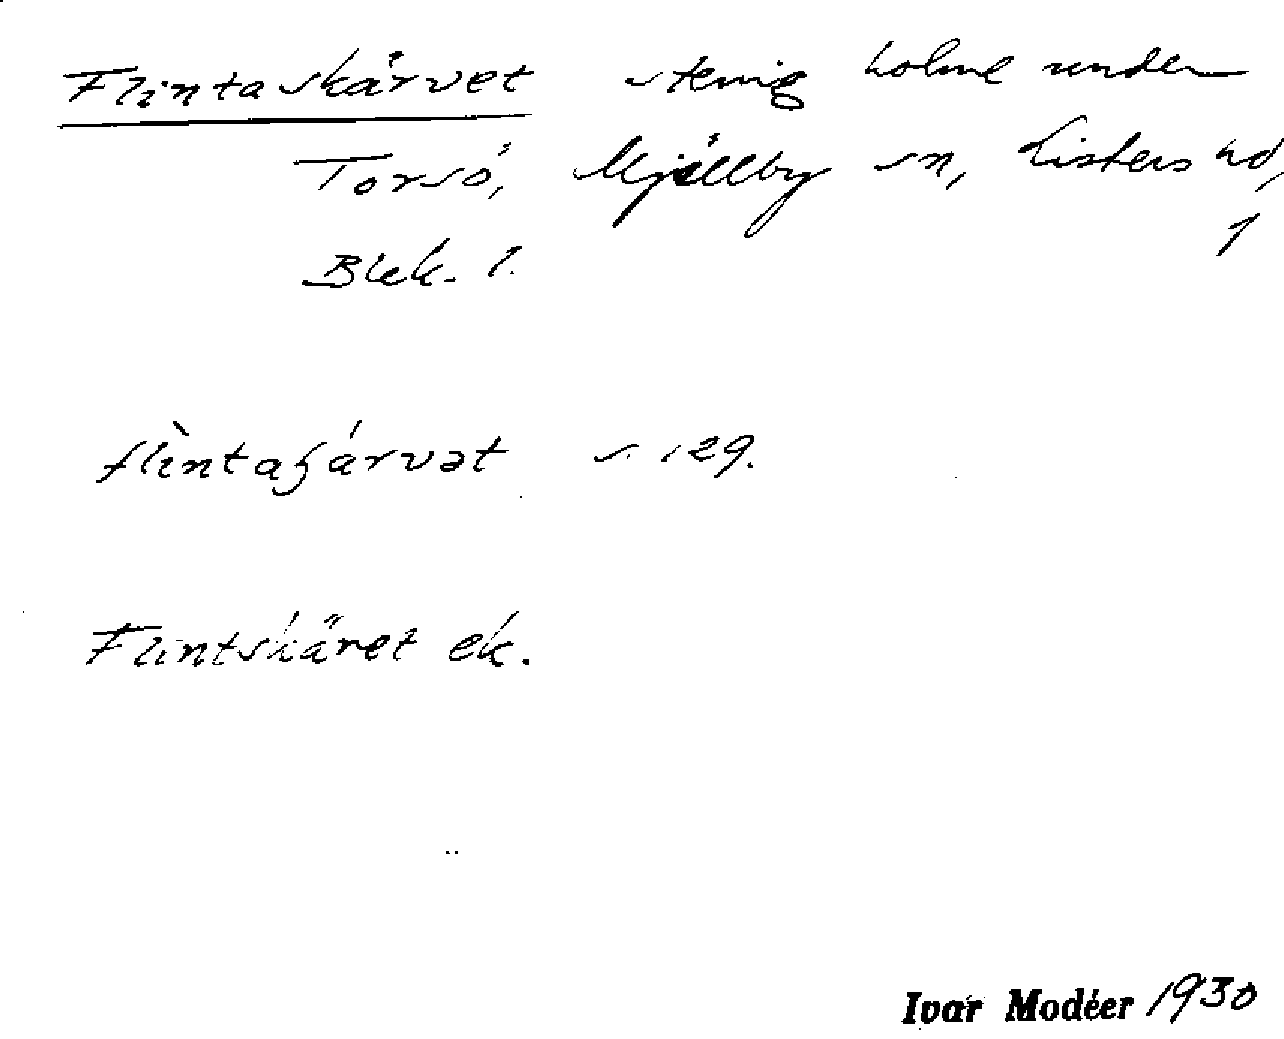 Flintaskärvet stenig holme under
Torsö, Mjällby sn, Listers hd,
1
Blek. l.
s. 129.
Flintskäret ek.
Ivar Modéer 1930